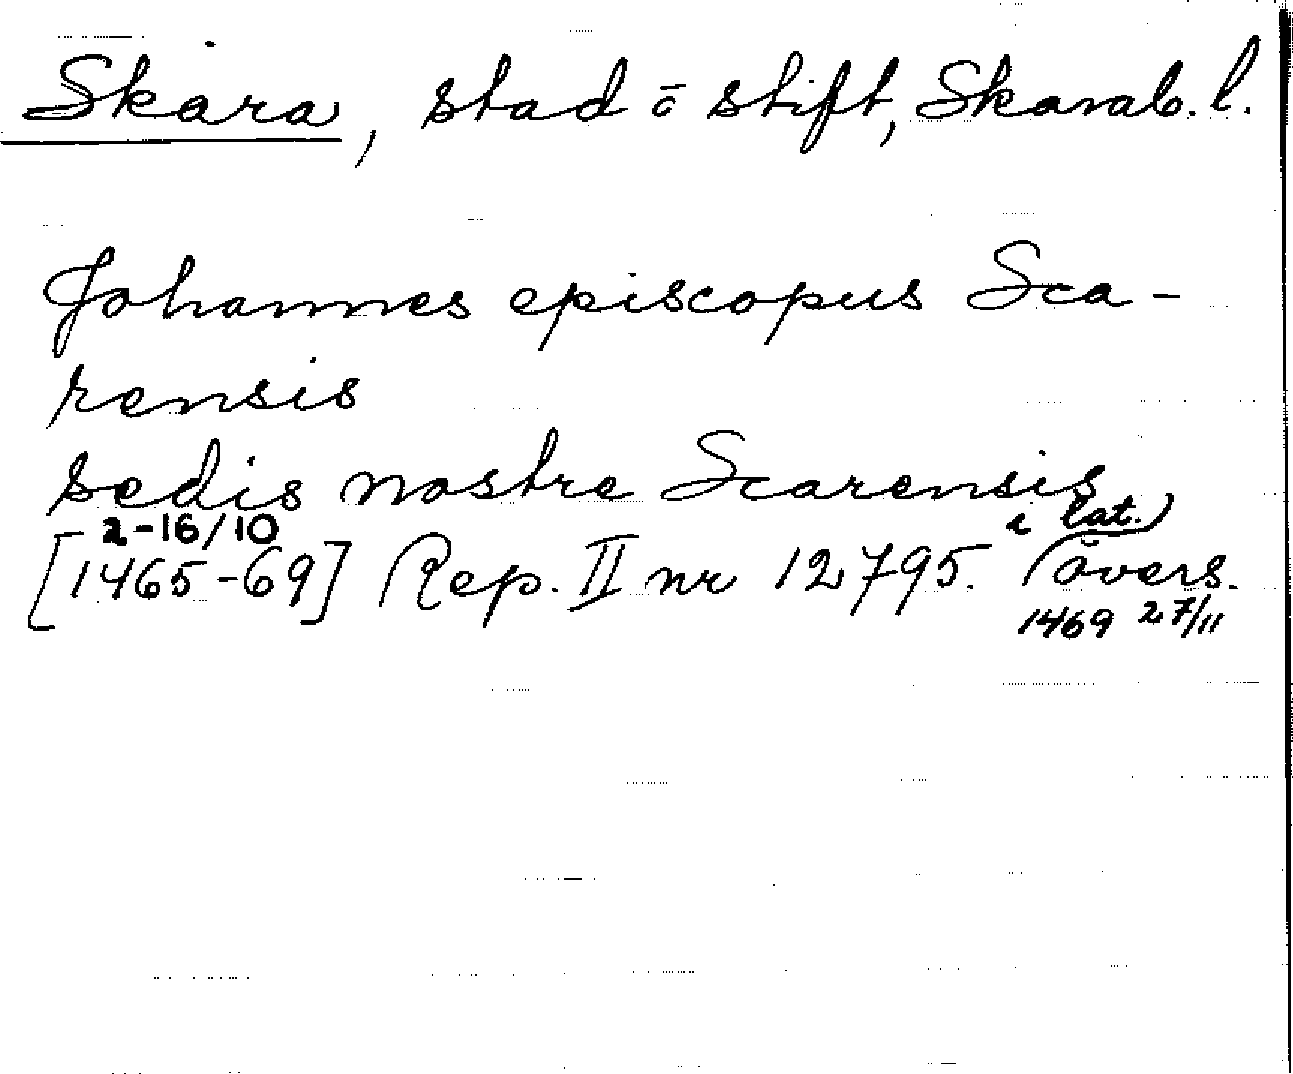 Skara, stad ō stift, Skarab. l.
Johannes episcopus Sca-
rensis
sedis nostre Scarensis
2-16/10 i lat.)
[1465-69] Rep. II nr 12795. (övers.
1469 27/11